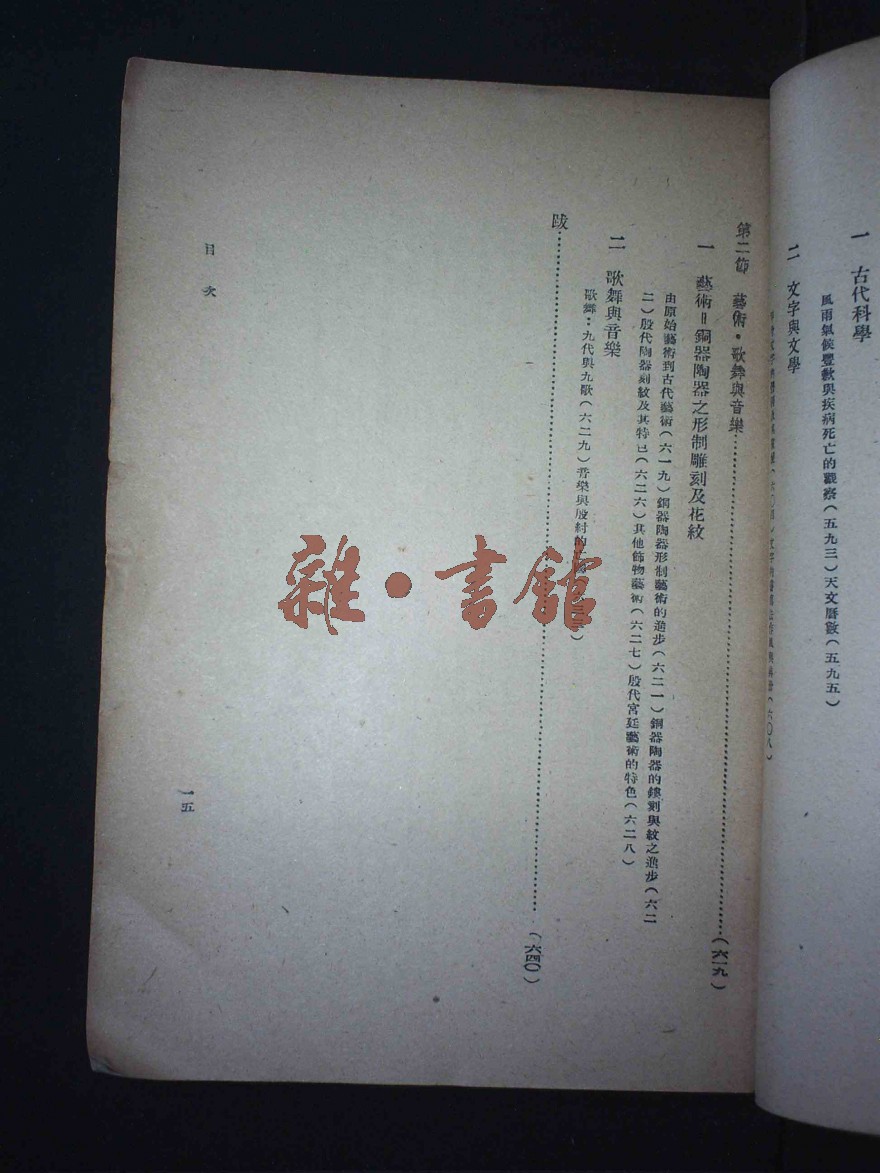 一 古代科學
風雨氣候豐歉與疾病死亡的觀察(五九三)天文曆數(五九五)
二 文字與文學
第二節 藝術·歌舞與音樂……(六一九)
一 藝術=銅器陶器之形制雕刻及花紋
由原始藝術到古代藝術(六一九)銅器陶器形制藝術的進步(六二一)銅器陶器的鏤刻與紋之進步(六二
二)殷代陶器刻紋及其特色(六二六)其他飾物藝術(六二七)殷代宮廷藝術的特色(六二八)
二 歌舞與音樂
歌舞:九代與九歌(六二九)音樂與殷紂的
跋……(六四〇)
目次
一五
雜·書館